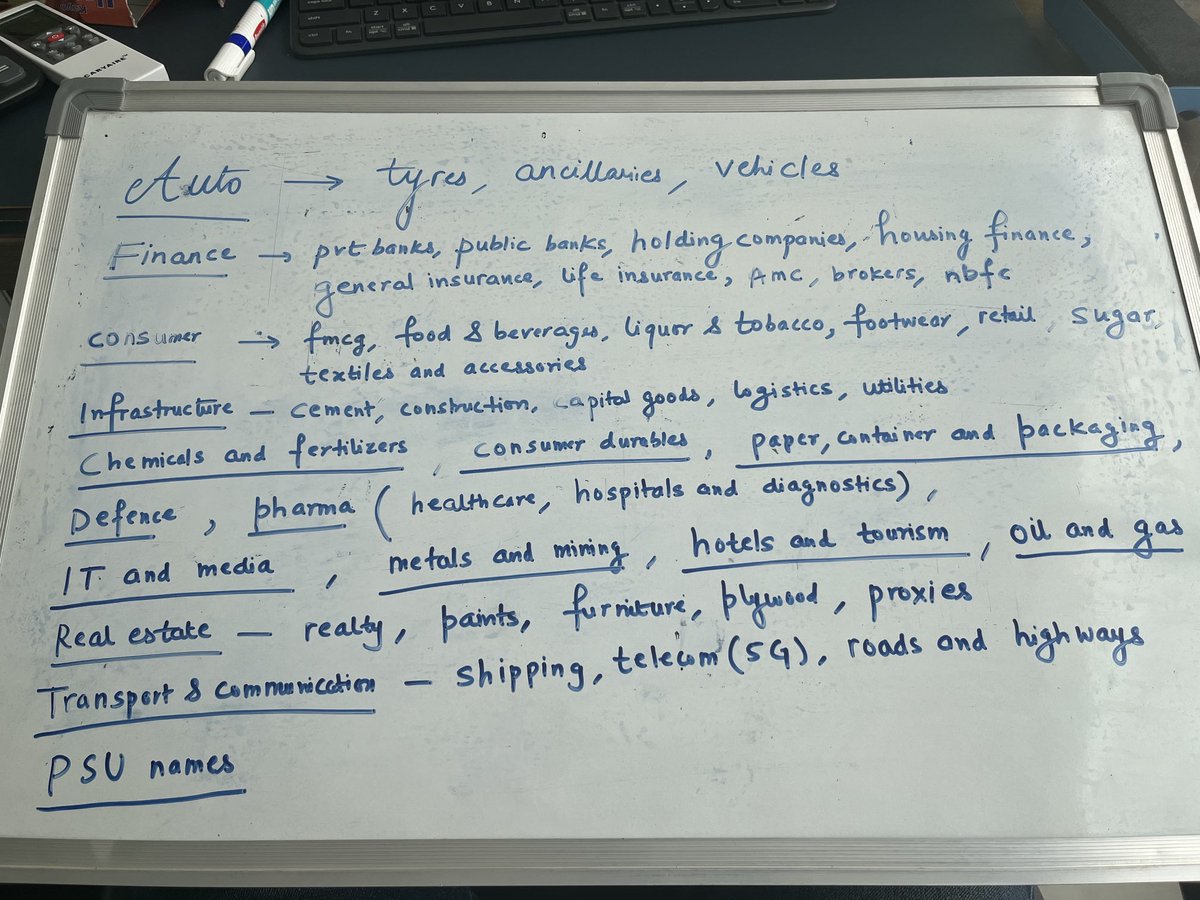 CARYAIRE
Auto → tyres, ancillaries, vehicles
Finance → pvt banks, public banks, holding companies, housing finance,
general insurance, life insurance, AMC, brokers, nbfc
consumer → fmcg, food & beverages, liquor & tobacco, footwear, retail, sugar,
textiles and accessories
Infrastructure – cement, construction, capital goods, logistics, utilities
Chemicals and fertilizers, consumer durables, paper, container and packaging,
Defence, pharma (healthcare, hospitals and diagnostics),
IT and media, metals and mining, hotels and tourism, oil and gas
Real estate – realty, paints, furniture, plywood, proxies
Transport & communication – shipping, telecom (5G), roads and highways
PSU names